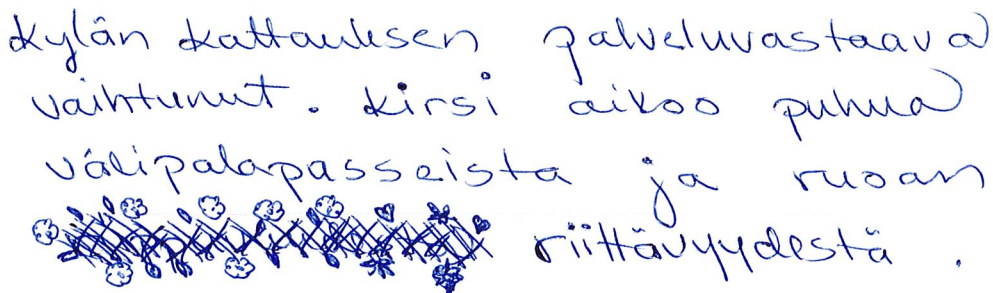 Kylän Kattauksen palveluvastaava
vaihtunut. Kirsi aikoo puhua
välipalapasseista ja ruoan
riittävyydestä.